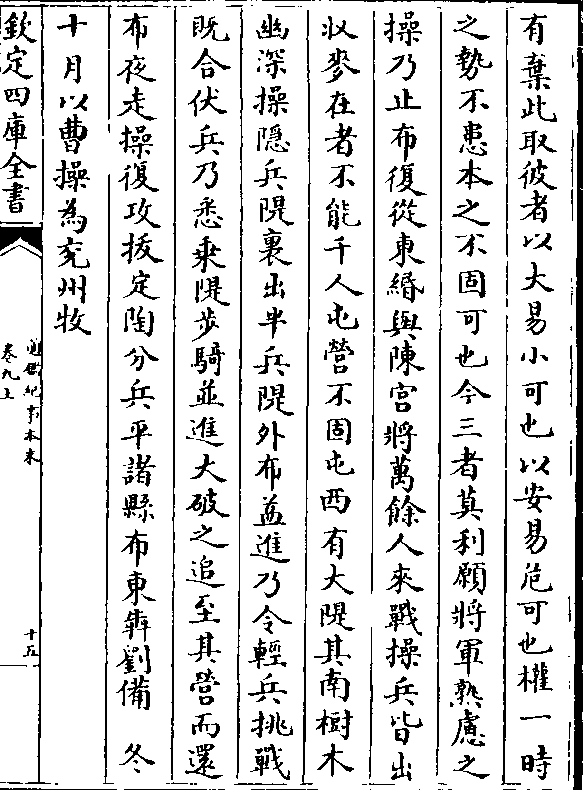 有棄此取彼者以大易小可也以安易危可也權一時
之勢不患本之不固可也今三者莫利願將軍熟慮之
操乃止布復從東緡與陳宮將萬餘人來戰操兵皆出
収麥在者不能千人屯營不固屯西有大隄其南樹木
幽深操隱兵隄裏出半兵隄外布益進乃令輕兵挑戰
既合伏兵乃悉乗隄步騎並進大破之追至其營而還
布夜走操復攻拔定陶分兵平諸縣布東奔劉備　冬
十月以曹操為兖州牧
欽定四庫全書
通鑑紀事本末
卷九上
十五